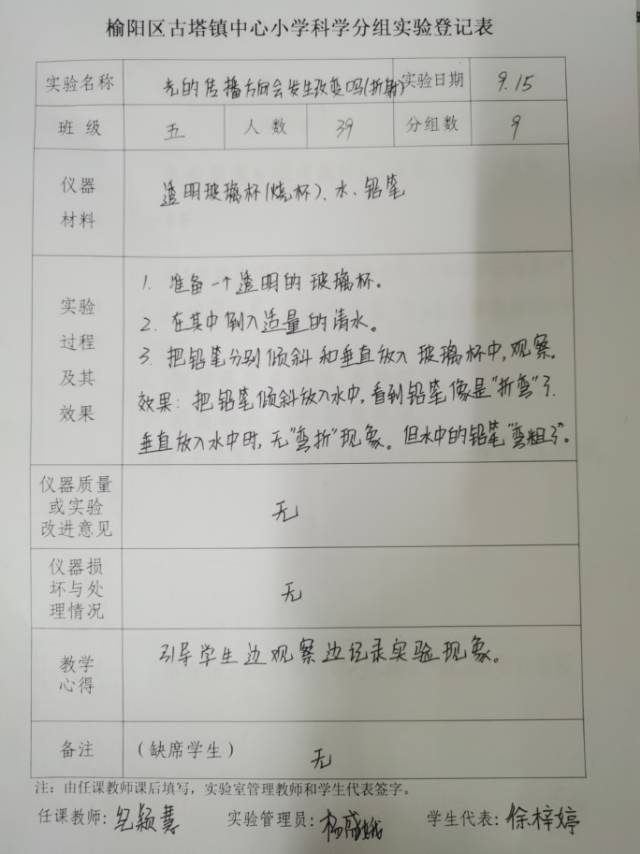 榆阳区古塔镇中心小学科学分组实验登记表
实验名称 光的传播方向会发生改变吗(折射) 实验日期 9.15
班级 五 人数 39 分组数 9
仪器材料 透明玻璃杯(烧杯)、水、铅笔
实验过程及其效果
1. 准备一个透明的玻璃杯。
2. 在其中倒入适量的清水。
3. 把铅笔分别倾斜和垂直放入玻璃杯中,观察。
效果: 把铅笔倾斜放入水中,看到铅笔像是"折弯"了.
垂直放入水中时,无"弯折"现象。但水中的铅笔"变粗了"。
仪器质量或实验改进意见 无
仪器损坏与处理情况 无
教学心得 引导学生边观察边记录实验现象。
备注 (缺席学生) 无
注:由任课教师课后填写,实验室管理教师和学生代表签字。
任课教师: 颖慧 实验管理员: 杨 学生代表: 徐梓婷